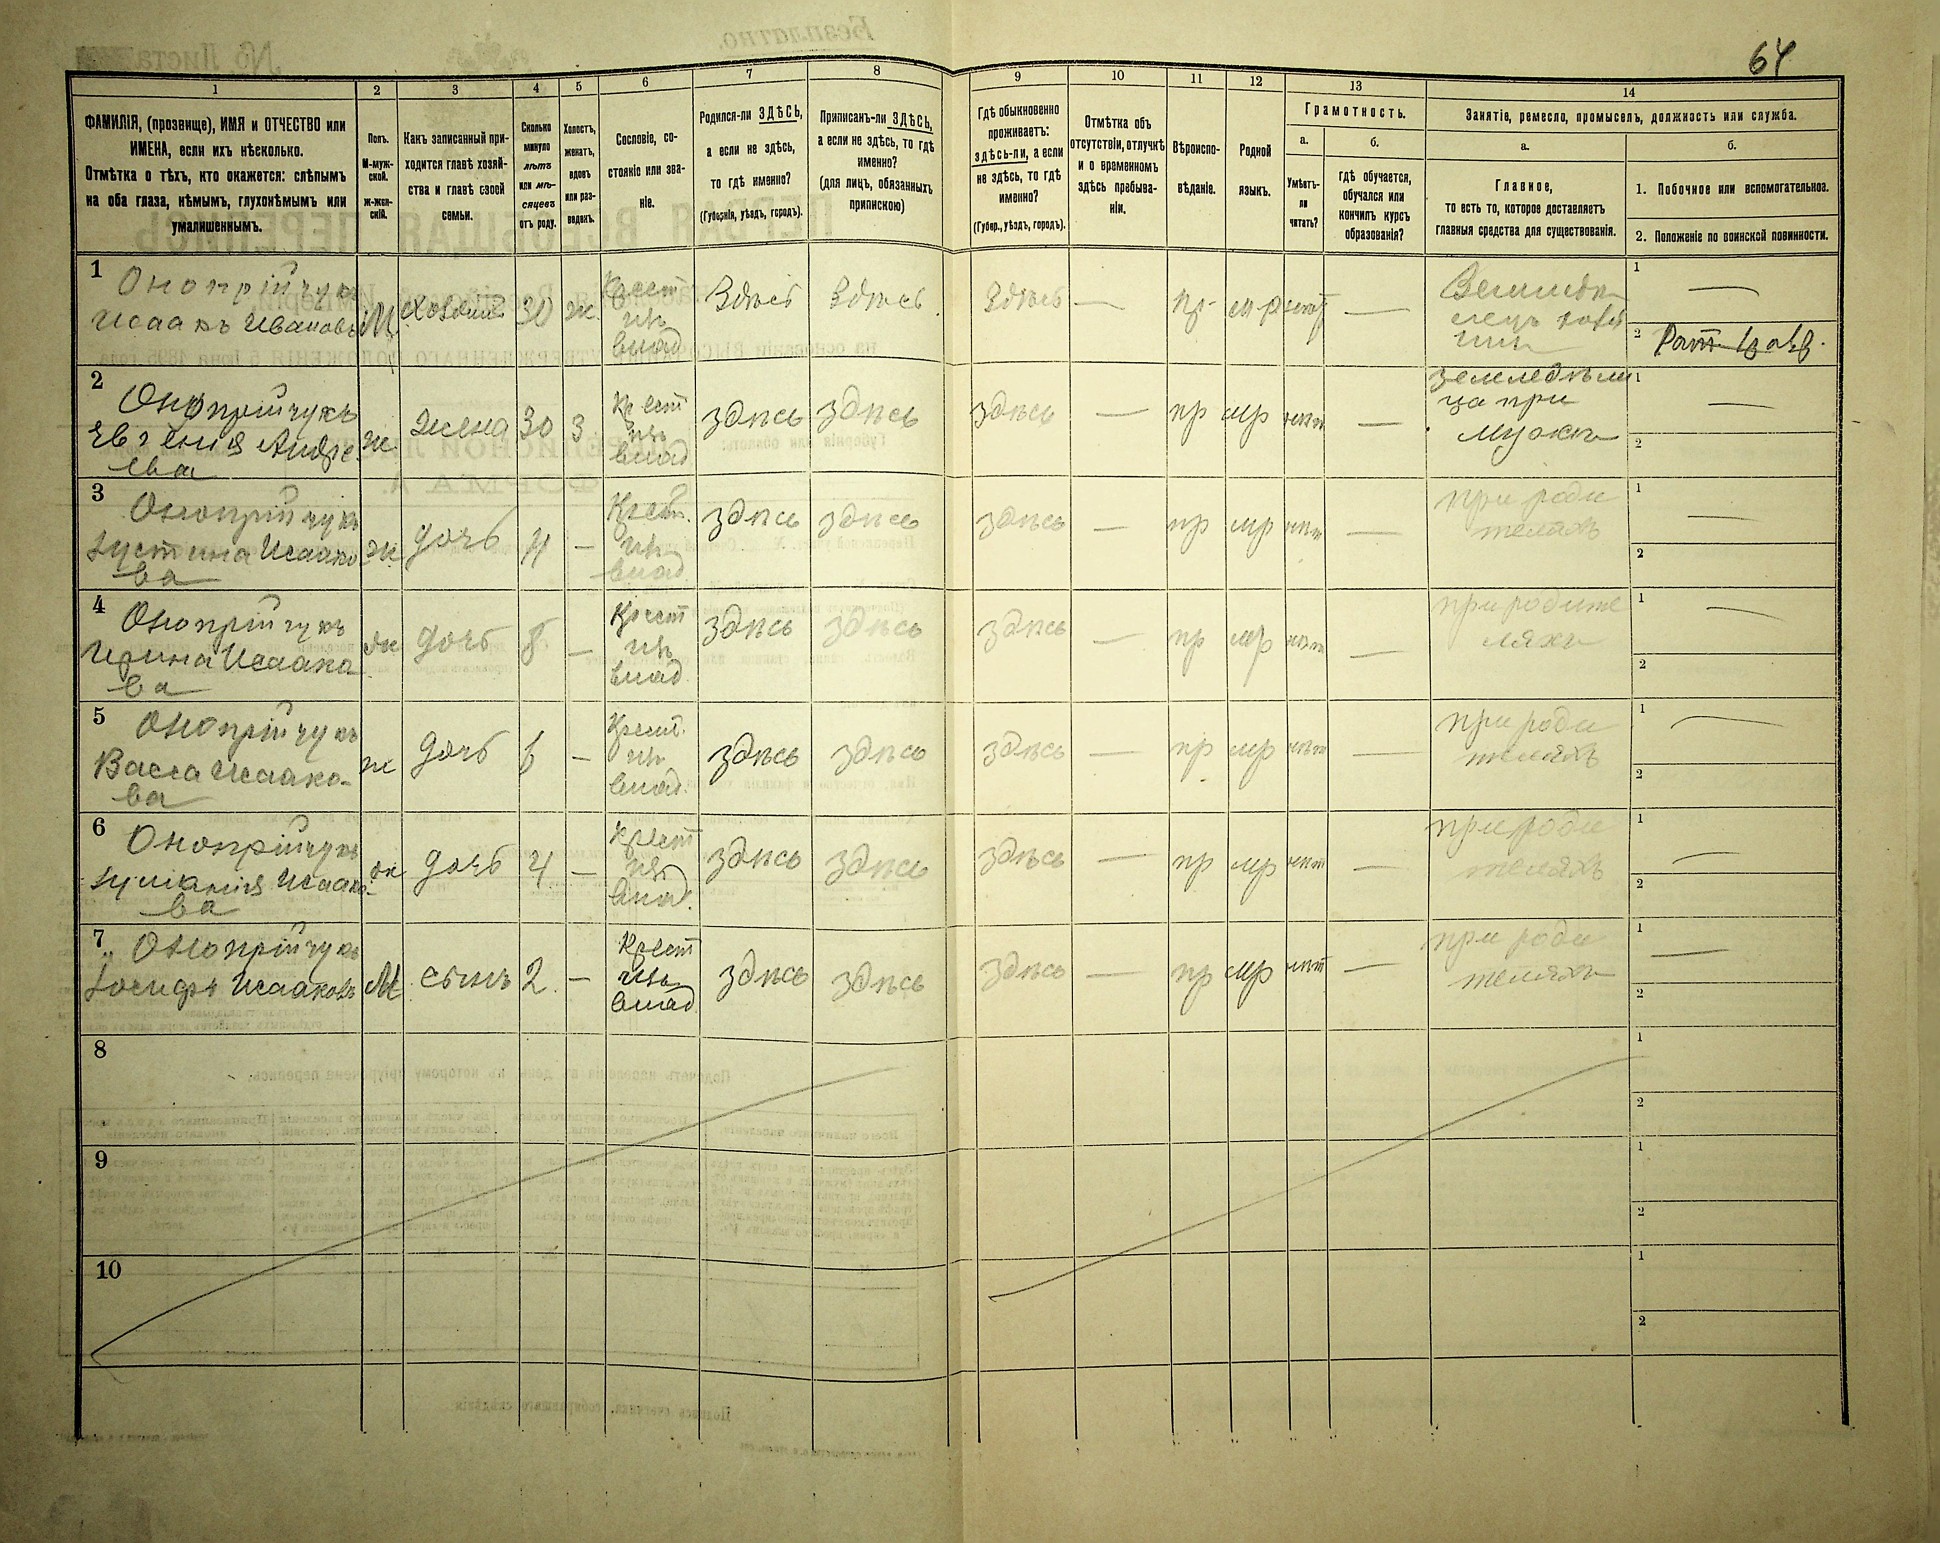 64
1 2 3 4 5 6 7 8 9 10 11 12 13 14
ФАМИЛІЯ, (прозвище), ИМЯ и ОТЧЕСТВО или
ИМЕНА, если ихъ нѣсколько.
Отмѣтка о тѣхъ, кто окажется: слѣпымъ
на оба глаза, нѣмымъ, глухонѣмымъ или
умалишеннымъ.
Полъ.
М-муж-
ской.
ж-жен-
скій.
Какъ записанный при-
ходится главѣ хозяй-
ства и главѣ своей
семьи.
Сколько
минуло
лѣтъ
или мѣ-
сяцевъ
отъ роду.
Холостъ,
женатъ,
вдовъ
или раз-
веденъ.
Сословіе, со-
стояніе или зва-
ніе.
Родился-ли ЗДѢСЬ,
а если не здѣсь,
то гдѣ именно?
(Губернія, уѣздъ, городъ).
Приписанъ-ли ЗДѢСЬ,
а если не здѣсь, то гдѣ
именно?
(для лицъ, обязанныхъ
припискою)
Гдѣ обыкновенно
проживаетъ:
здѣсь-ли, а если
не здѣсь, то гдѣ
именно?
(Губер., уѣздъ, городъ).
Отмѣтка объ
отсутствіи, отлучкѣ
и о временномъ
здѣсь пребыва-
ніи.
Вѣроиспо-
вѣданіе.
Родной
языкъ.
Грамотность.
а.
Умѣетъ-
ли
читать?
б.
Гдѣ обучается,
обучался или
кончилъ курсъ
образованія?
Занятіе, ремесло, промыселъ, должность или служба.
а.
Главное,
то есть то, которое доставляетъ
главныя средства для существованія.
б.
1. Побочное или вспомогательное.
2. Положеніе по воинской повинности.
1
Онопрійчукъ
Исаакъ Ивановъ
М
хозяинъ
30
ж
Крест
изъ
влад
Здѣсь
Здѣсь
Здѣсь
—
пр
мр
нѣт
—
1
—
2
2
Онопрійчукъ
Евгенія Андре
ева
ж
жена
30
з
Крест
изъ
влад
здѣсь
здѣсь
здѣсь
—
пр
мр
нѣт
—
земледѣли
ца при
мужѣ
1
—
2
3
Онопрійчукъ
Іустина Исаако
ва
ж
дочь
11
—
Крест.
изъ
влад
здѣсь
здѣсь
здѣсь
—
пр
мр
нѣт
—
при роди
теляхъ
1
—
2
4
Онопрійчукъ
Ирина Исаако
ва
ж
дочь
8
—
Крест
изъ
влад
здѣсь
здѣсь
здѣсь
—
пр
мр
нѣт
—
при родите
ляхъ
1
—
2
5
Онопрійчукъ
Васса Исаако-
ва
ж
дочь
6
—
Крест.
изъ
влад.
здѣсь
здѣсь
здѣсь
—
пр
мр
нѣт
—
при роди
теляхъ
1
—
2
6
Онопрійчукъ
Іуліанія Исаако-
ва
ж
дочь
4
—
Крест
изъ
влад.
здѣсь
здѣсь
здѣсь
—
пр
мр
нѣт
—
при роди
теляхъ
1
—
2
7
Онопрійчукъ
Іосифъ Исааковъ
М
сынъ
2
—
Крест
изъ
влад
здѣсь
здѣсь
здѣсь
—
пр
мр
нѣт
—
при роди
теляхъ
1
—
2
8
1
2
9
1
2
10
1
2